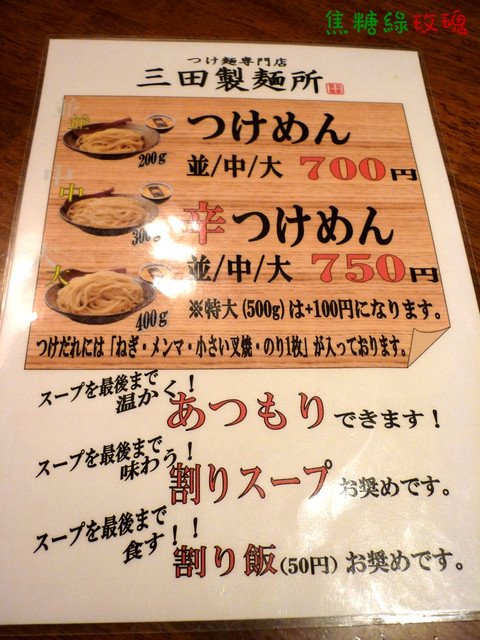 焦糖綠玫瑰
つけ麺専門店
三田製麺所
並
200g
つけめん
並/中/大 700円
中
300g
辛つけめん
大
400g
並/中/大 750円
※特大(500g)は+100円になります。
つけだれには「ねぎ・メンマ・小さい叉焼・のり1枚」が入っております。
スープを最後まで
温かく!
あつもりできます!
スープを最後まで
味わう!
割りスープお奨めです。
スープを最後まで
食す!!
割り飯(50円)お奨めです。